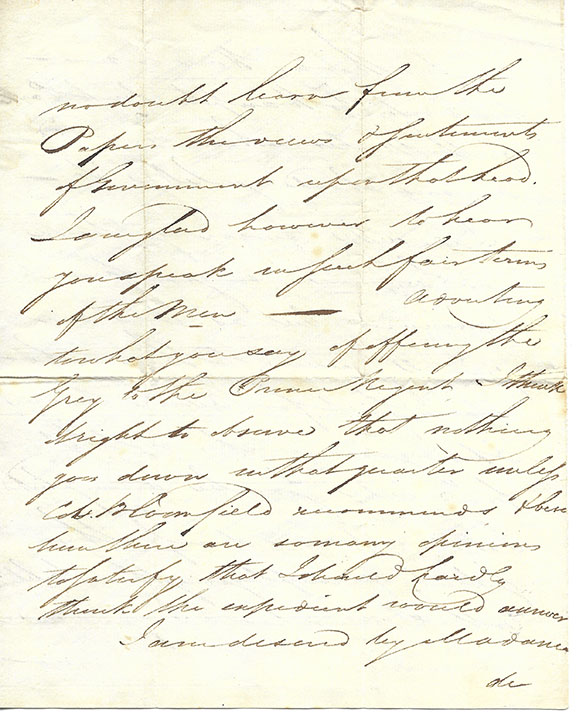 no doubt learn from the
Papers the views & sentiments
of Government upon that head.
I am glad however to hear
you speak in such fair terms
of the Men — according
to what you say of offering the
Grey to the Prince Regent I think
it right to observe that nothing
goes down in that quarter unless
Bloomfield recommends &
there are so many opinions
to satisfy that I should hardly
think the expedient would answer
I am desired by Madame
de